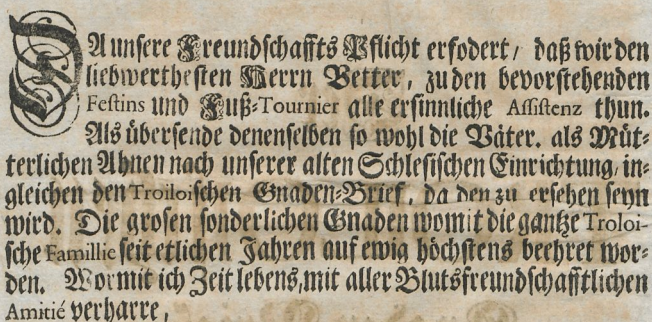 DA unsere Freundschaffts Pflicht erfodert / daß wir den
liebwerthesten Herrn Vetter, zu den bevorstehenden
Festins und Fuß-Tournier alle ersinnliche Assistenz thun.
Als übersende denenselben so wohl die Väter. als Müt-
terlichen Ahnen nach unserer alten Schlesischen Einrichtung, in-
gleichen den Troiloischen Gnaden-Brief, da den zu ersehen seyn
wird. Die grosen sonderlichen Gnaden womit die gantze Troloi-
sche Famillie seit etlichen Jahren auf ewig höchstens beehret wor-
den. Wormit ich Zeit lebens, mit aller Blutsfreundschafftlichen
Amitié verharre,